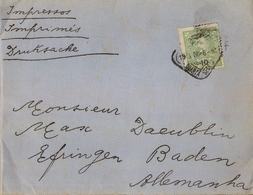 Impressos
Imprimés
Drucksache
Monsieur
Max Daeublin
Efringen Baden
Allemanha